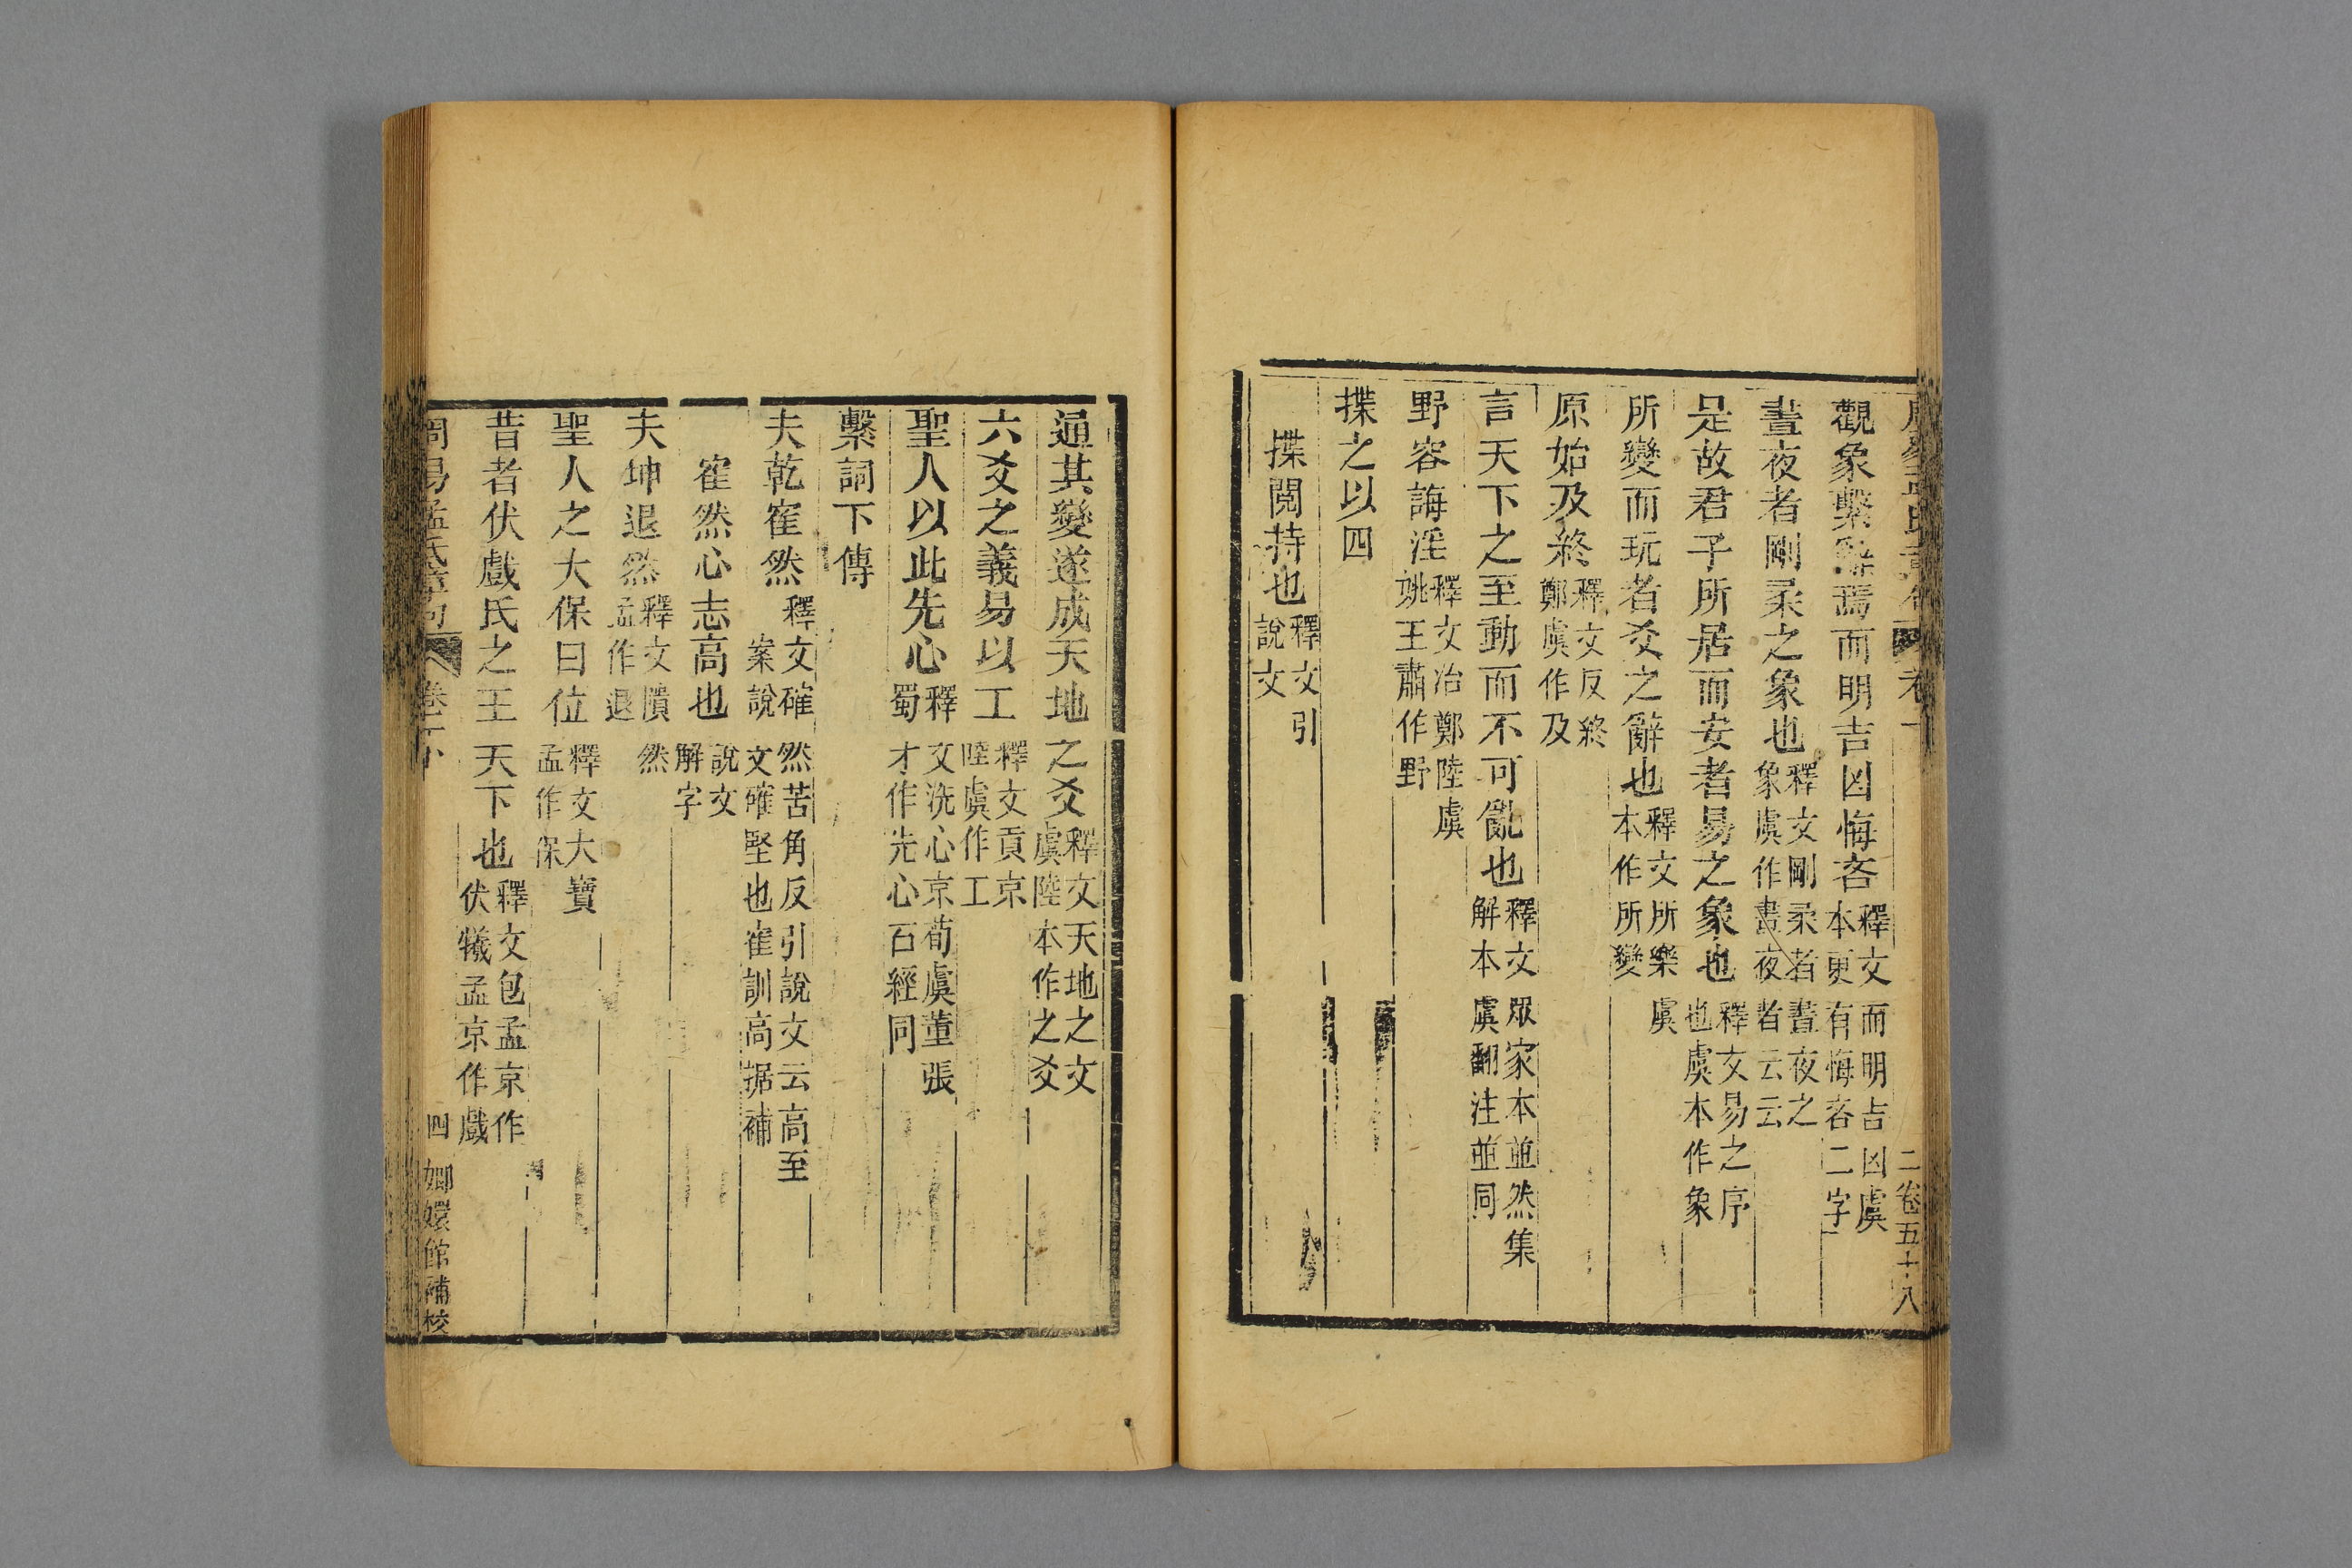 二卷五十八
觀象繫辭焉而明吉凶悔吝釋文而明吉凶虞本更有悔吝二字
晝夜者剛柔之象也釋文剛柔者晝夜之象虞作晝夜者云云
是故君子所居而安者易之象也釋文易之序也虞本作象
所變而玩者爻之辭也釋文所樂虞本作所變
原始及終釋文反終鄭虞作及
言天下之至動而不可亂也釋文眾家本並然集解本虞翻注並同
野容誨淫釋文冶鄭陸虞姚王肅作野
揲之以四
揲閱持也釋文引說文
通其變遂成天地之爻釋文天地之文虞陸本作之爻
六爻之義易以工釋文貢京陸虞作工
聖人以此先心釋文洗心京荀虞董張蜀才作先心石經同
繫詞下傳
夫乾寉然釋文確然苦角反引說文云高至案說文確堅也寉訓高據補
寉然心志高也說文解字
夫坤退然釋文隤然孟作退
聖人之大保曰位釋文大寶孟作保
昔者伏戲氏之王天下也釋文包孟京作伏犧孟京作戲
周易孟氏章句 卷下 四 嫏嬛館補校